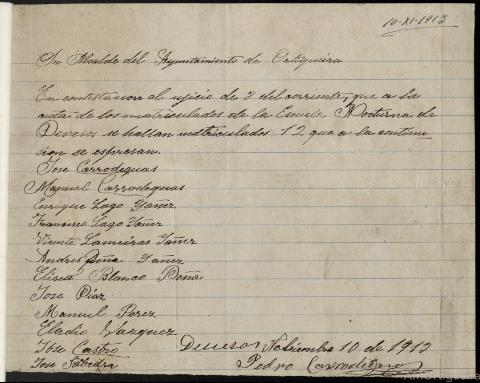 10-XI-1913
Sr Alcalde del Ayuntamiento de Ortigueira
En contestacion al oficio de 3 del corriente, que a la
de los matriculados de la Escuela Nocturna de
Devesos se hallan matriculados 12 que a la continua
cion se expresan.
Jose Carrodeguas
Manuel Carrodeguas
Enrique Lago Yañez
Francisco Lago Yañez
Vicente Lameiras Yañez
Andres Peña Yañez
Eliseo Blanco Peña
Jose Diaz
Manuel Perez
Eladio Vazquez
Jose Castro
Jose Sabedra
Devesos Nobiembre 10 de 1913
Pedro